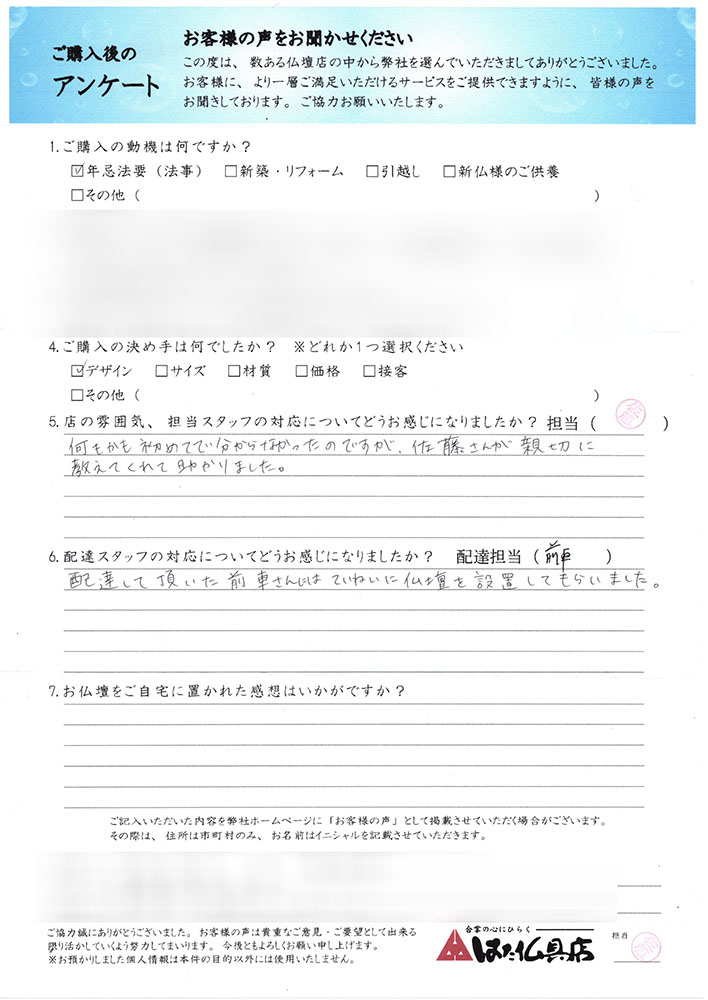 ご購入後の
アンケート
お客様の声をお聞かせください
この度は、数ある仏壇店の中から弊社を選んでいただきましてありがとうございました。
お客様に、より一層ご満足いただけるサービスをご提供できますように、皆様の声を
お聞きしております。ご協力お願いいたします。
1.ご購入の動機は何ですか？
☑年忌法要（法事） □新築・リフォーム □引越し □新仏様のご供養
□その他（ ）
4.ご購入の決め手は何でしたか？ ※どれか1つ選択ください
☑デザイン □サイズ □材質 □価格 □接客
□その他（ ）
5.店の雰囲気、担当スタッフの対応についてどうお感じになりましたか？担当（ ）
何もかも初めてで分からなかったのですが、佐藤さんが親切に
教えてくれて助かりました。
6.配達スタッフの対応についてどうお感じになりましたか？ 配達担当（前車 ）
配達して頂いた前車さんにはていねいに仏壇を設置してもらいました。
7.お仏壇をご自宅に置かれた感想はいかがですか？
ご記入いただいた内容を弊社ホームページに「お客様の声」として掲載させていただく場合がございます。
その際は、住所は市町村のみ、お名前はイニシャルを記載させていただきます。
ご協力誠にありがとうございました。お客様の声は貴重なご意見・ご要望として出来る
限り活かしていくよう努力してまいります。今後ともよろしくお願い申し上げます。
※お預かりしました個人情報は本件の目的以外には使用いたしません。
合掌の心にひらく
はた仏具店
担当